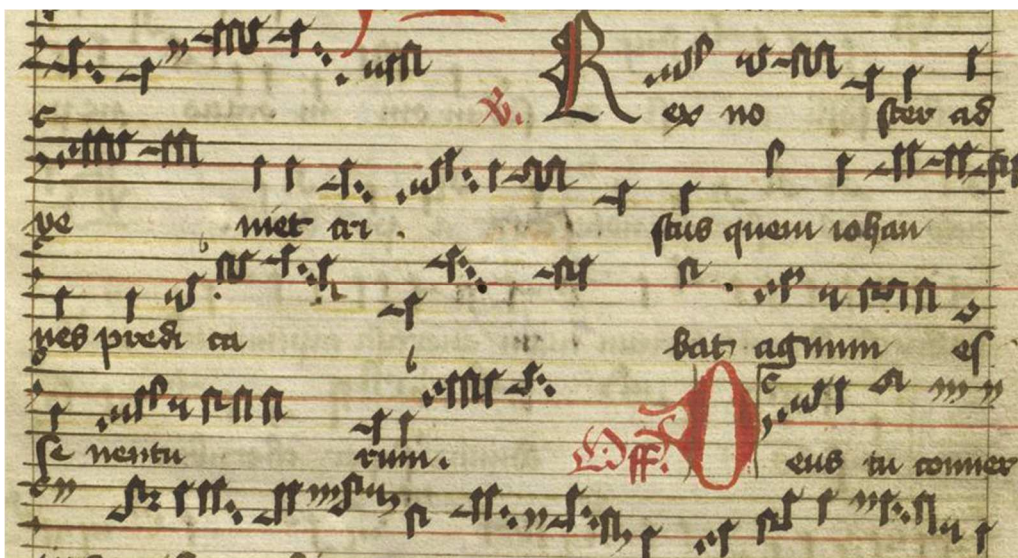 ℟. Rex no ster ad
ve niet cri . stus quem iohan
nes predi ca bat agnum es
se uentu rum . Off. Deus tu conuer